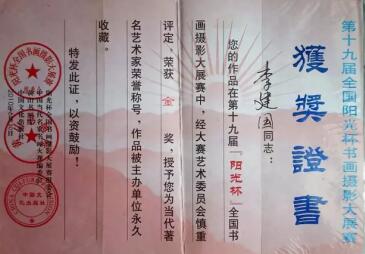 第十九届全国阳光杯书画摄影大展赛
獲獎證書
李建国同志：
您的作品在第十九届“阳光杯”全国书
画摄影大展赛中，经大赛艺术委员会慎重
评定，荣获 金 奖，授予您为当代著
名艺术家荣誉称号，作品被主办单位永久
收藏。
特发此证，以资鼓励！